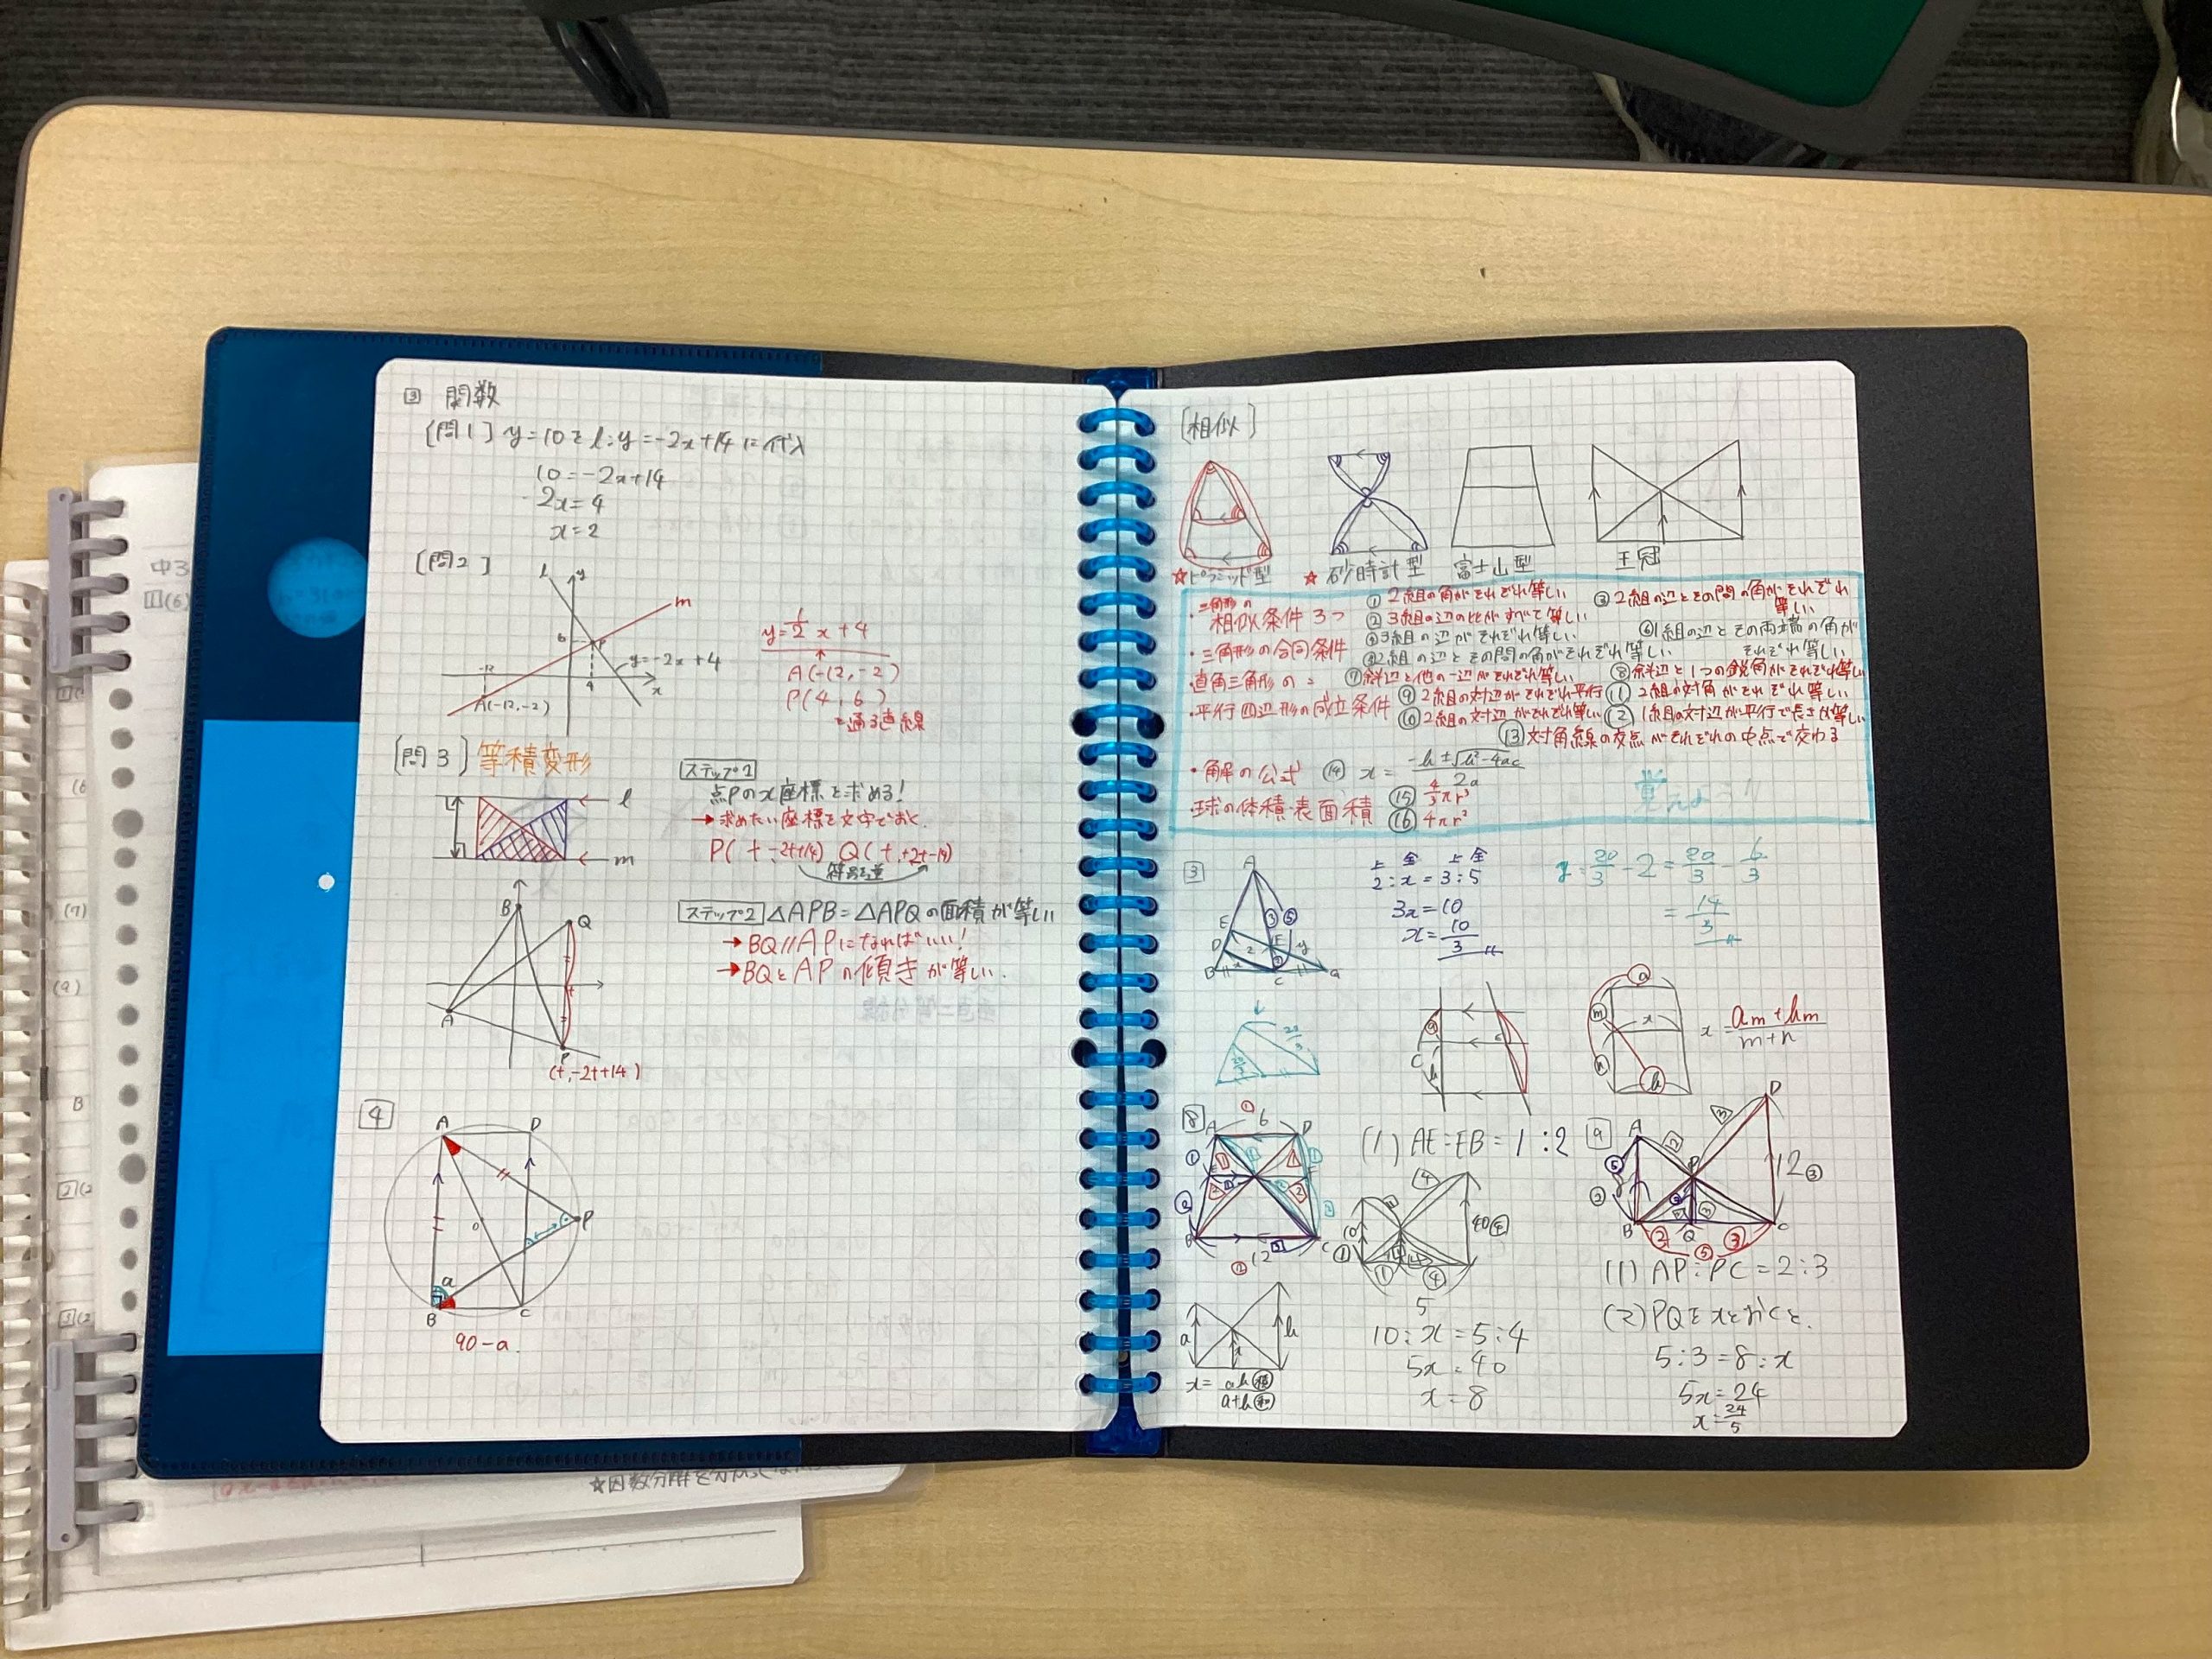 ③ 関数
[問1] y=10をl:y=-2x+14に代入
10=-2x+14
2x=4
x=2
[問2]
l
y
m
6
P
-12
4
x
y=-2x+4
A(-12,-2)
y=1/2 x+4
A(-12,-2)
P(4,6)
を通る直線
[問3] 等積変形
l
m
ステップ1
点Pのx座標を求める!
→求めたい座標を文字でおく.
P(t,-2t+14) Q(t,+2t-14)
符号逆
B
Q
A
t
P
(t,-2t+14)
ステップ2 △APB=△APQの面積が等しい
→BQ//APになればいい!
→BQとAPの傾きが等しい.
4
A
D
o
P
a
B
C
90-a.
[相似]
☆ピラミッド型
☆砂時計型
富士山型
王冠
・三角形の相似条件3つ
① 2組の角がそれぞれ等しい
② 3組の辺の比がすべて等しい
③ 2組の辺とその間の角がそれぞれ等しい
・三角形の合同条件
3組の辺がそれぞれ等しい
2組の辺とその間の角がそれぞれ等しい
⑥ 1組の辺とその両端の角がそれぞれ等しい
・直角三角形の〃
⑦ 斜辺と他の一辺がそれぞれ等しい
⑧ 斜辺と1つの鋭角がそれぞれ等しい
・平行四辺形の成立条件
⑨ 2組の対辺がそれぞれ平行
⑩ 2組の対辺がそれぞれ等しい
⑪ 2組の対角がそれぞれ等しい
⑫ 1組の対辺が平行で長さが等しい
⑬ 対角線の交点がそれぞれの中点で交わる
・解の公式 ⑭ x=-b±√b²-4ac/2a
球の体積・表面積 ⑮ 4/3πr³
⑯ 4πr²
3
A
③ ⑤
E
D
F
2
y
x
B
C
G
上 全 上 全
2:x=3:5
3x=10
x=10/3
y=20/3-2=20/3-6/3
=14/3
a
m
x
n
b
x=am+bm/m+n
8
① 6
A
D
B
C
② 12
(1) AE:EB=1:2
10
40④
① ④
5
10:x=5:4
5x=40
x=8
a
b
x
x=ab㊢/a+b㊄
9
A
D
P
12③
B
Q
C
② ③
⑤
(1) AP:PC=2:3
(2) PQをxとおくと.
5:3=8:x
5x=24
x=24/5
中3